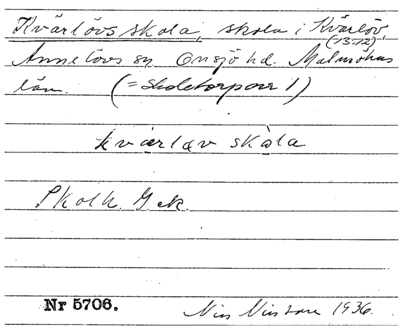 Kvärlövs skola, skola i Kvärlöv
(13:12)
Annelövs sn. Onsjö hd. Malmöhus
län. (= Skoletorpour 1)
kværlæv skåla
Skolk. Gck.
Nr 5706. Nils Nilsson 1936.